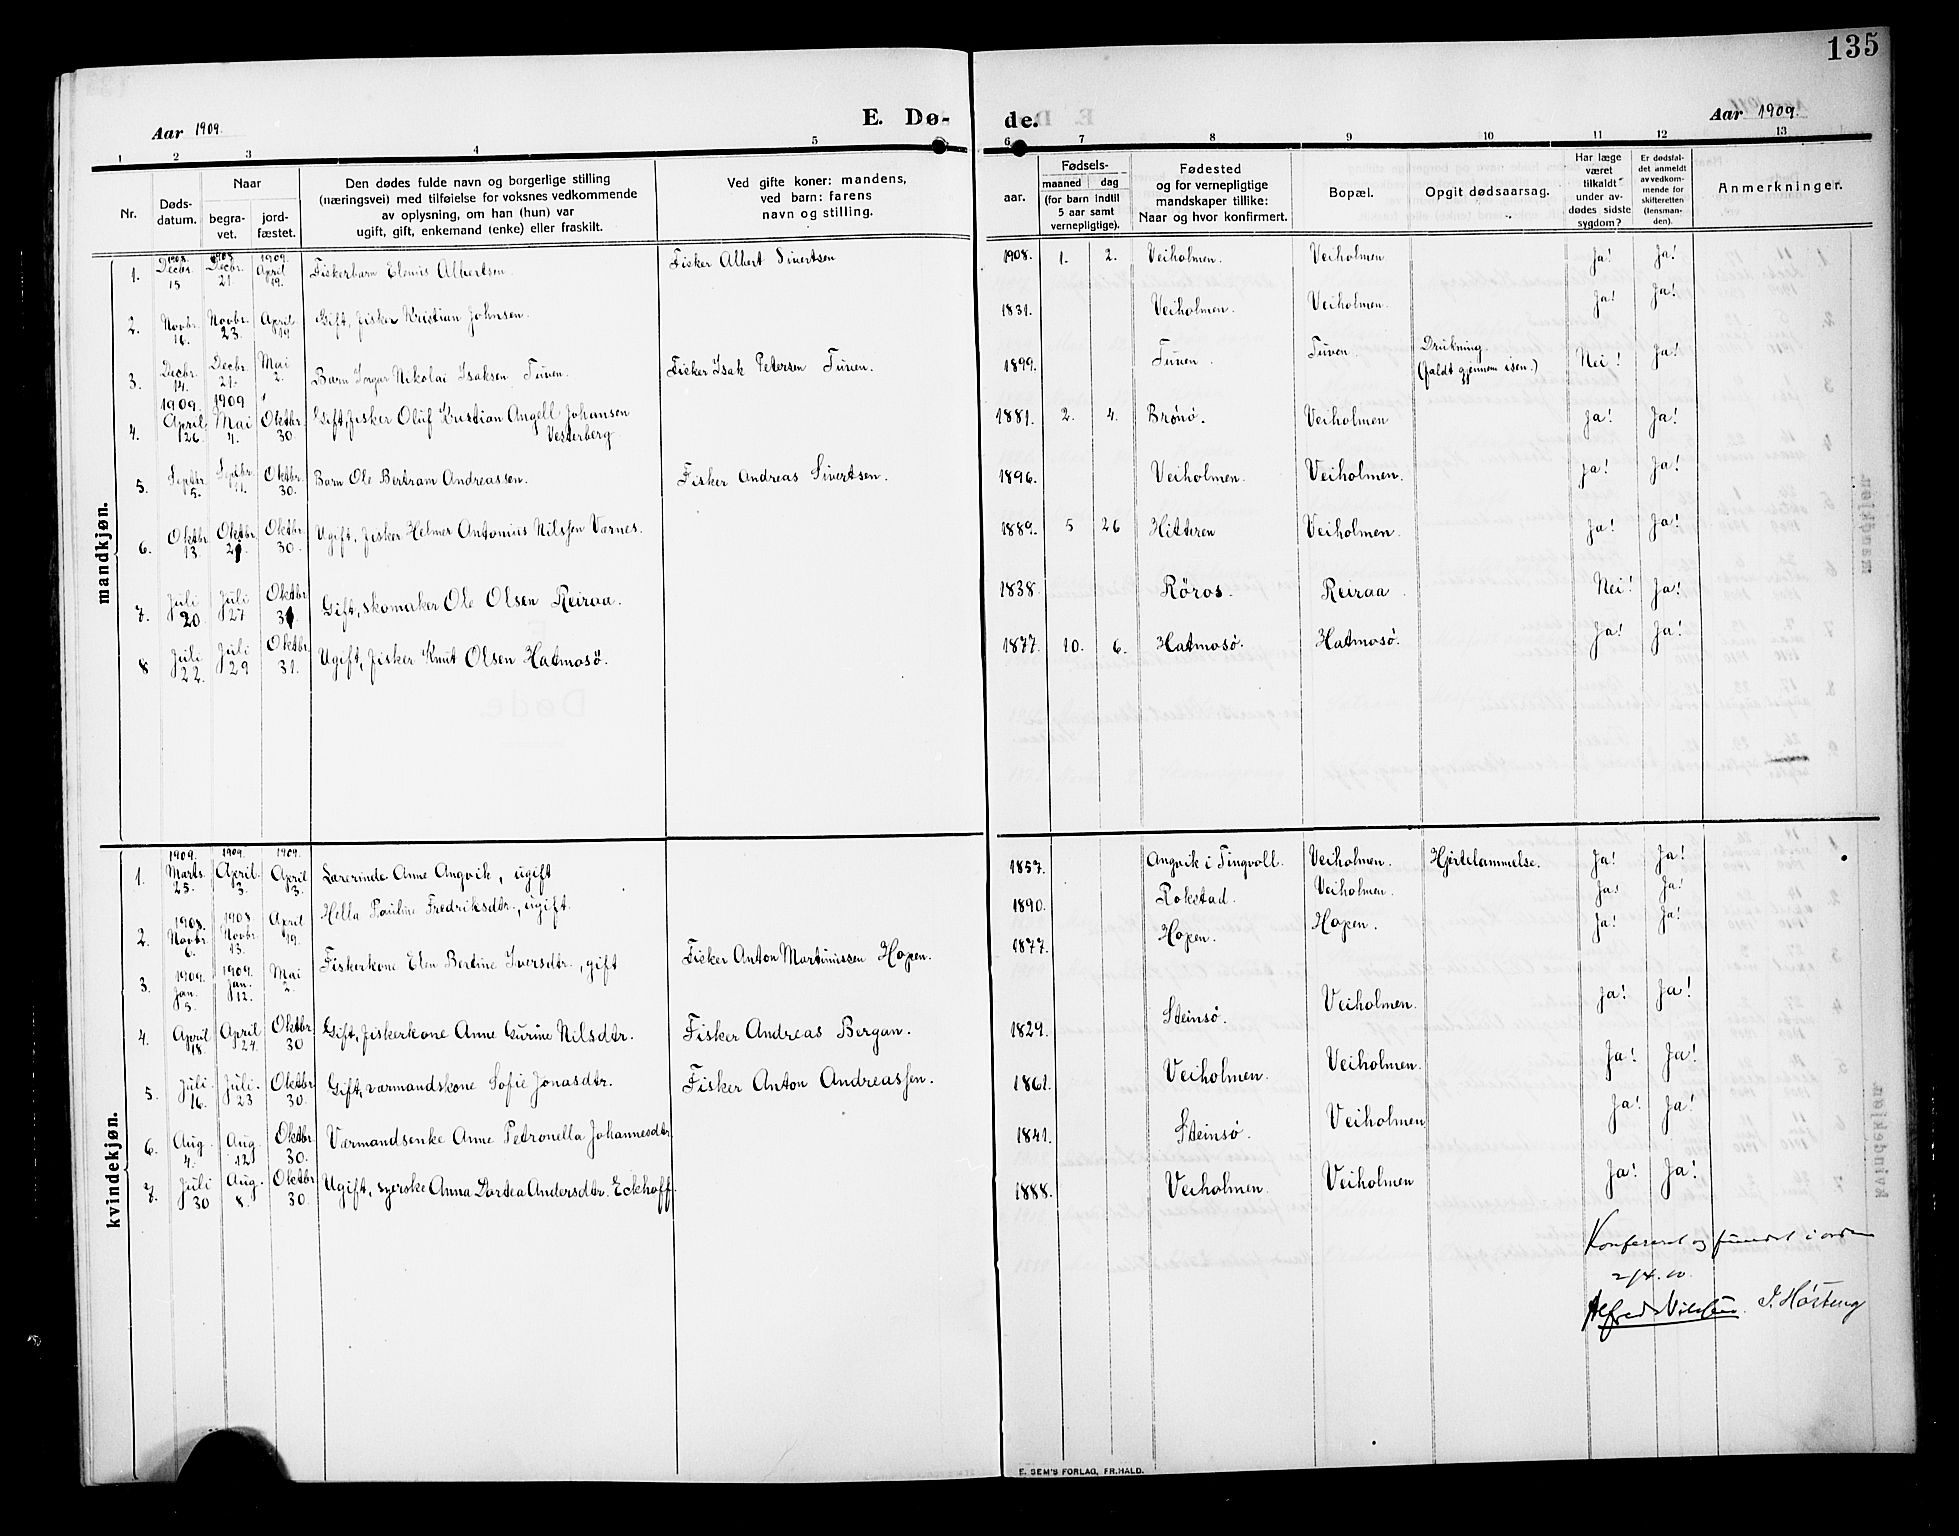 135
Aar 1909.
E. Dø-
de.
Aar 1909.
1 2 3 4 5 6 7 8 9 10 11 12 13
Nr.
Døds-
datum.
Naar
begra-
vet.
jord-
fæstet.
Den dødes fulde navn og borgerlige stilling
(næringsvei) med tilføielse for voksnes vedkommende
av oplysning, om han (hun) var
ugift, gift, enkemand (enke) eller fraskilt.
Ved gifte koner: mandens,
ved barn: farens
navn og stilling.
aar.
Fødsels-
maaned dag
(for barn indtil
5 aar samt
vernepligtige).
Fødested
og for vernepligtige
mandskaper tillike:
Naar og hvor konfirmert.
Bopæl.
Opgit dødsaarsag.
Har læge
været
tilkaldt
under av-
dødes sidste
sygdom?
Er dødsfal-
det anmeldt
av vedkom-
mende for
skifteretten
(lensman-
den).
Anmerkninger.
mandkjøn.
1. 1908. Decbr. 15 1908. Decbr. 21. 1909. April 19. Fiskerbarn Albertsen. Fisker Albert Sivertsen 1908. 1. 2. Veiholmen. Veiholmen Ja! Ja!
2. Novbr. 16. Novbr. 23. April 19. Gift, fisker Kristian Johnsen. 1831. Veiholmen. Veiholmen. Ja! Ja!
3. Decbr. 14. Decbr. 21. Mai 2. Barn Nikolai Isaksen Tuven. Fisker Isak Petersen Tuven. 1899. Tuven. Tuven. Drukning (faldt gjennem isen.) Nei! Ja!
4. 1909. April 26. 1909 Mai 4. Oktbr. 30. Gift, fisker Oluf Kristian Angell Johansen
Vesterberg. 1881. 2. 4. Brønø. Veiholmen Ja! Ja!
5. Septbr. 5. Septbr. 11. Oktbr. 30. Barn Ole Bertram Andreassen. Fisker Andreas Sivertsen. 1896. Veiholmen. Veiholmen. Ja! Ja!
6. Oktbr. 13. Oktbr. Oktbr. 30. Ugift, fisker Helmer Antonius Nilssen Værnes. 1889. 5 26 Hitteren Veiholmen. Ja! Ja!
7. Juli 20 Juli 27 Oktbr. 31 Gift, skomaker Ole Olsen Reiraa. 1838. Røros. Reiraa. Nei! Ja!
8 Juli 22. Juli 29 Oktbr. 31. Ugift, fisker Knut Olsen Hatmosø. 1877. 10. 6. Hatmosø. Hatmosø. Ja! Ja!
kvindekjøn.
1. 1909. Marts. 25. 1909. April. 3. 1909. April 3. Lærerinde Anne Angvik, ugift 1857. Angvik i Tingvoll. Veiholmen. Hjertelammelse. Ja! Ja!
2. 1908. Novbr. 6. 1908. Novbr. 13. April 19. Hella Pauline Fredriksdtr., ugift. 1890. Rokstad. Veiholmen. Ja! Ja!
3. 1909. Jan. 5. 1909. Jan. 12. Mai 2. Fiskerkone Elen Bertine Iversdtr., gift Fisker Anton Martinussen Hopen. 1877. Hopen. Hopen. Ja! Ja!
4. April 18. April 24. Oktbr 30 Gift, fiskerkone Anne Gurine Nilsdtr. Fisker Andreas Bergan. 1829. Steinsø. Veiholmen. Ja! Ja!
5. Juli. 16. Juli. 23 Oktbr 30. Gift, værmandskone Sofie Jonasdtr. Fisker Anton Andreassen. 1861. Veiholmen. Veiholmen. Ja! Ja!
6. Aug. 4. Aug. 12 Oktbr 30. Værmandsenke Anne Petronella Johannesdtr. 1841. Steinsø. Veiholmen Ja! Ja!
7. Juli 30 Aug. 8. Oktbr 30. Ugift, syerske Anna Dortea Andersdtr. Eckhoff. 1888. Veiholmen. Veiholmen Ja! Ja!
Konfereret og fundet i orden
2/4.10.
Alfred Nilssen. J. Høsteng
E. SEM'S FORLAG, FR.HALD.